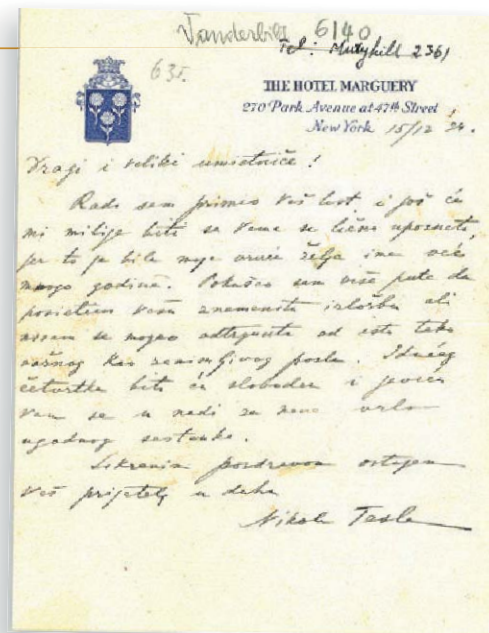 Vanderbilt 6140
Tel: Muryhill 2361
63I.
THE HOTEL MARGUERY
270 Park Avenue at 47th Street,
New York 15/12 24.
Dragi i veliki umjetniče!
Rado sam primio Vaš list i još će
mi milije biti sa Vama se lično upoznati,
jer to je bila moja vruća želja ima već
mnogo godina. Pokušao sam više puta da
posietim Vašu znamenitu izložbu ali
nisam se mogao odtrgnuti od isto tako
važnog kao zanimljivog posla. Idućeg
četvrtka biti ću slobodan i javiću
Vam se u nadi za novo vrlo
ugodnog sastanka.
Iskrenim pozdravom ostajem
Vaš prijatelj u duhu
Nikola Tesla